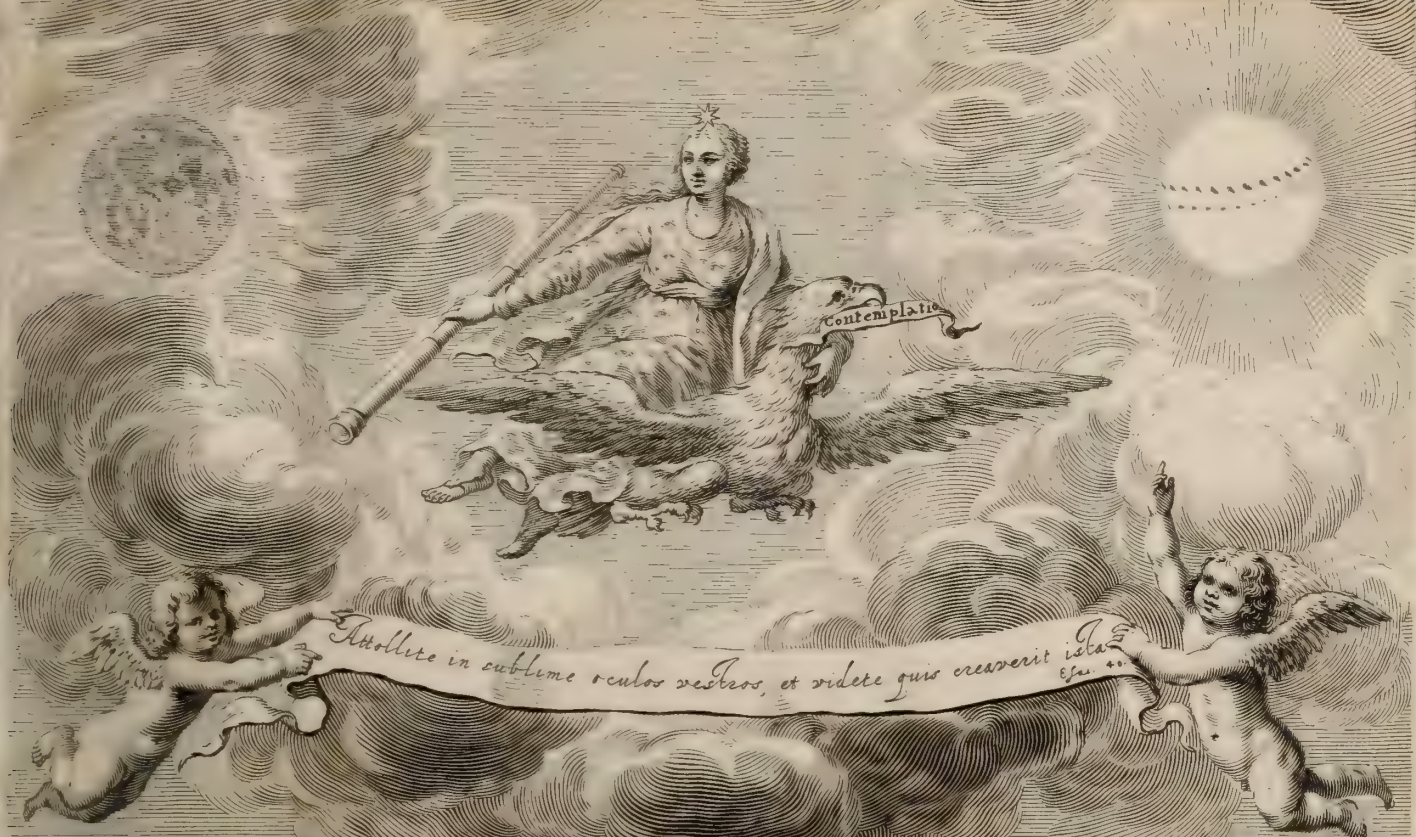 Contemplatio
Attollite in sublime oculos vestros, et videte quis creaverit ista
Esai. 40.